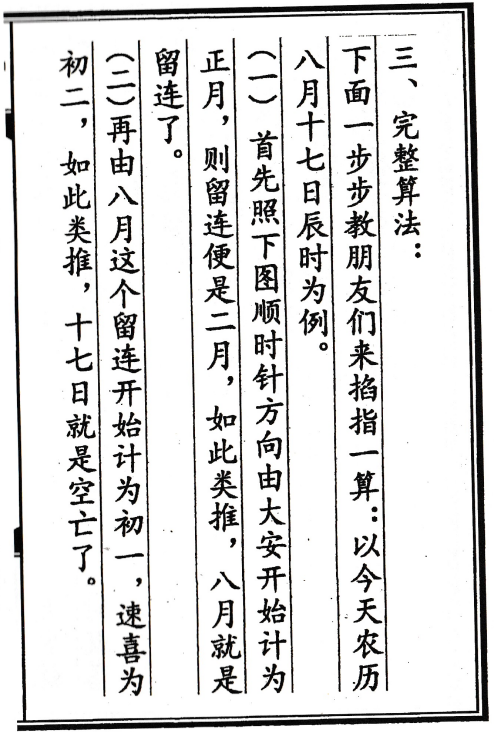 三、完整算法：
下面一步步教朋友们来掐指一算：以今天农历
八月十七日辰时为例。
（一）首先照下图顺时针方向由大安开始计为
正月，则留连便是二月，如此类推，八月就是
留连了。
（二）再由八月这个留连开始计为初一，速喜为
初二，如此类推，十七日就是空亡了。